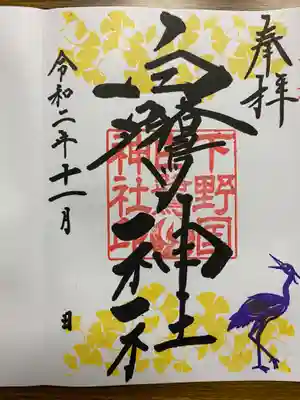 奉拝
白鷺神社
下野国
白鷺
神社印
令和二年十一月
日